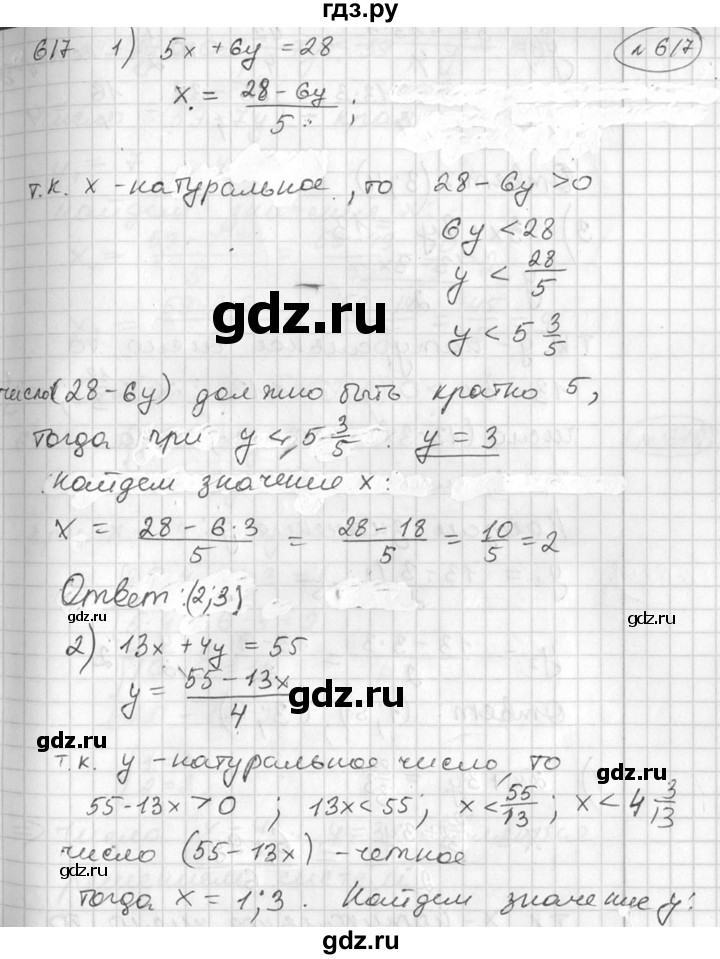 гдз.ру
617 1) 5x + 6y = 28 №617
x = (28 - 6y)/5;
т.к. x - натуральное, то 28 - 6y > 0
6y < 28
y < 28/5
gdz.ru
y < 5 3/5
число (28 - 6y) должно быть кратно 5,
тогда при y < 5 3/5. y = 3
найдем значение x:
x = (28 - 6·3)/5 = (28 - 18)/5 = 10/5 = 2
Ответ: (2;3)
gdz.ru gdz.ru
2) 13x + 4y = 55
y = (55 - 13x)/4
gdz.ru
gdz.ru
т.к. y - натуральное число, то
55 - 13x > 0; 13x < 55; x < 55/13; x < 4 3/13
число (55 - 13x) - четное
gdz.ru
тогда x = 1; 3. Найдем значение y:
gdz.ru